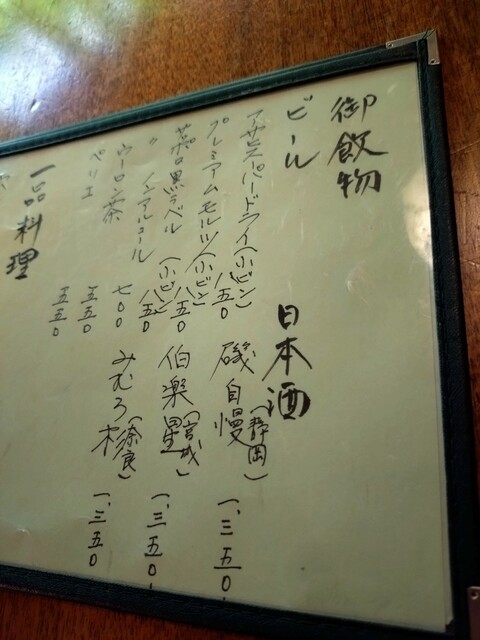 御飲物
ビール
アサヒスーパードライ(小ビン)
八五〇
プレミアムモルツ(小ビン)
八五〇
サッポロ黒ラベル(小ビン)
八五〇
〃 ノンアルコール
七〇〇
ウーロン茶
五五〇
ペリエ
五五〇
日本酒
磯自慢(静岡)
一、三五〇
伯楽星(宮城)
一、三五〇
みむろ杉(奈良)
一、三五〇
一品料理